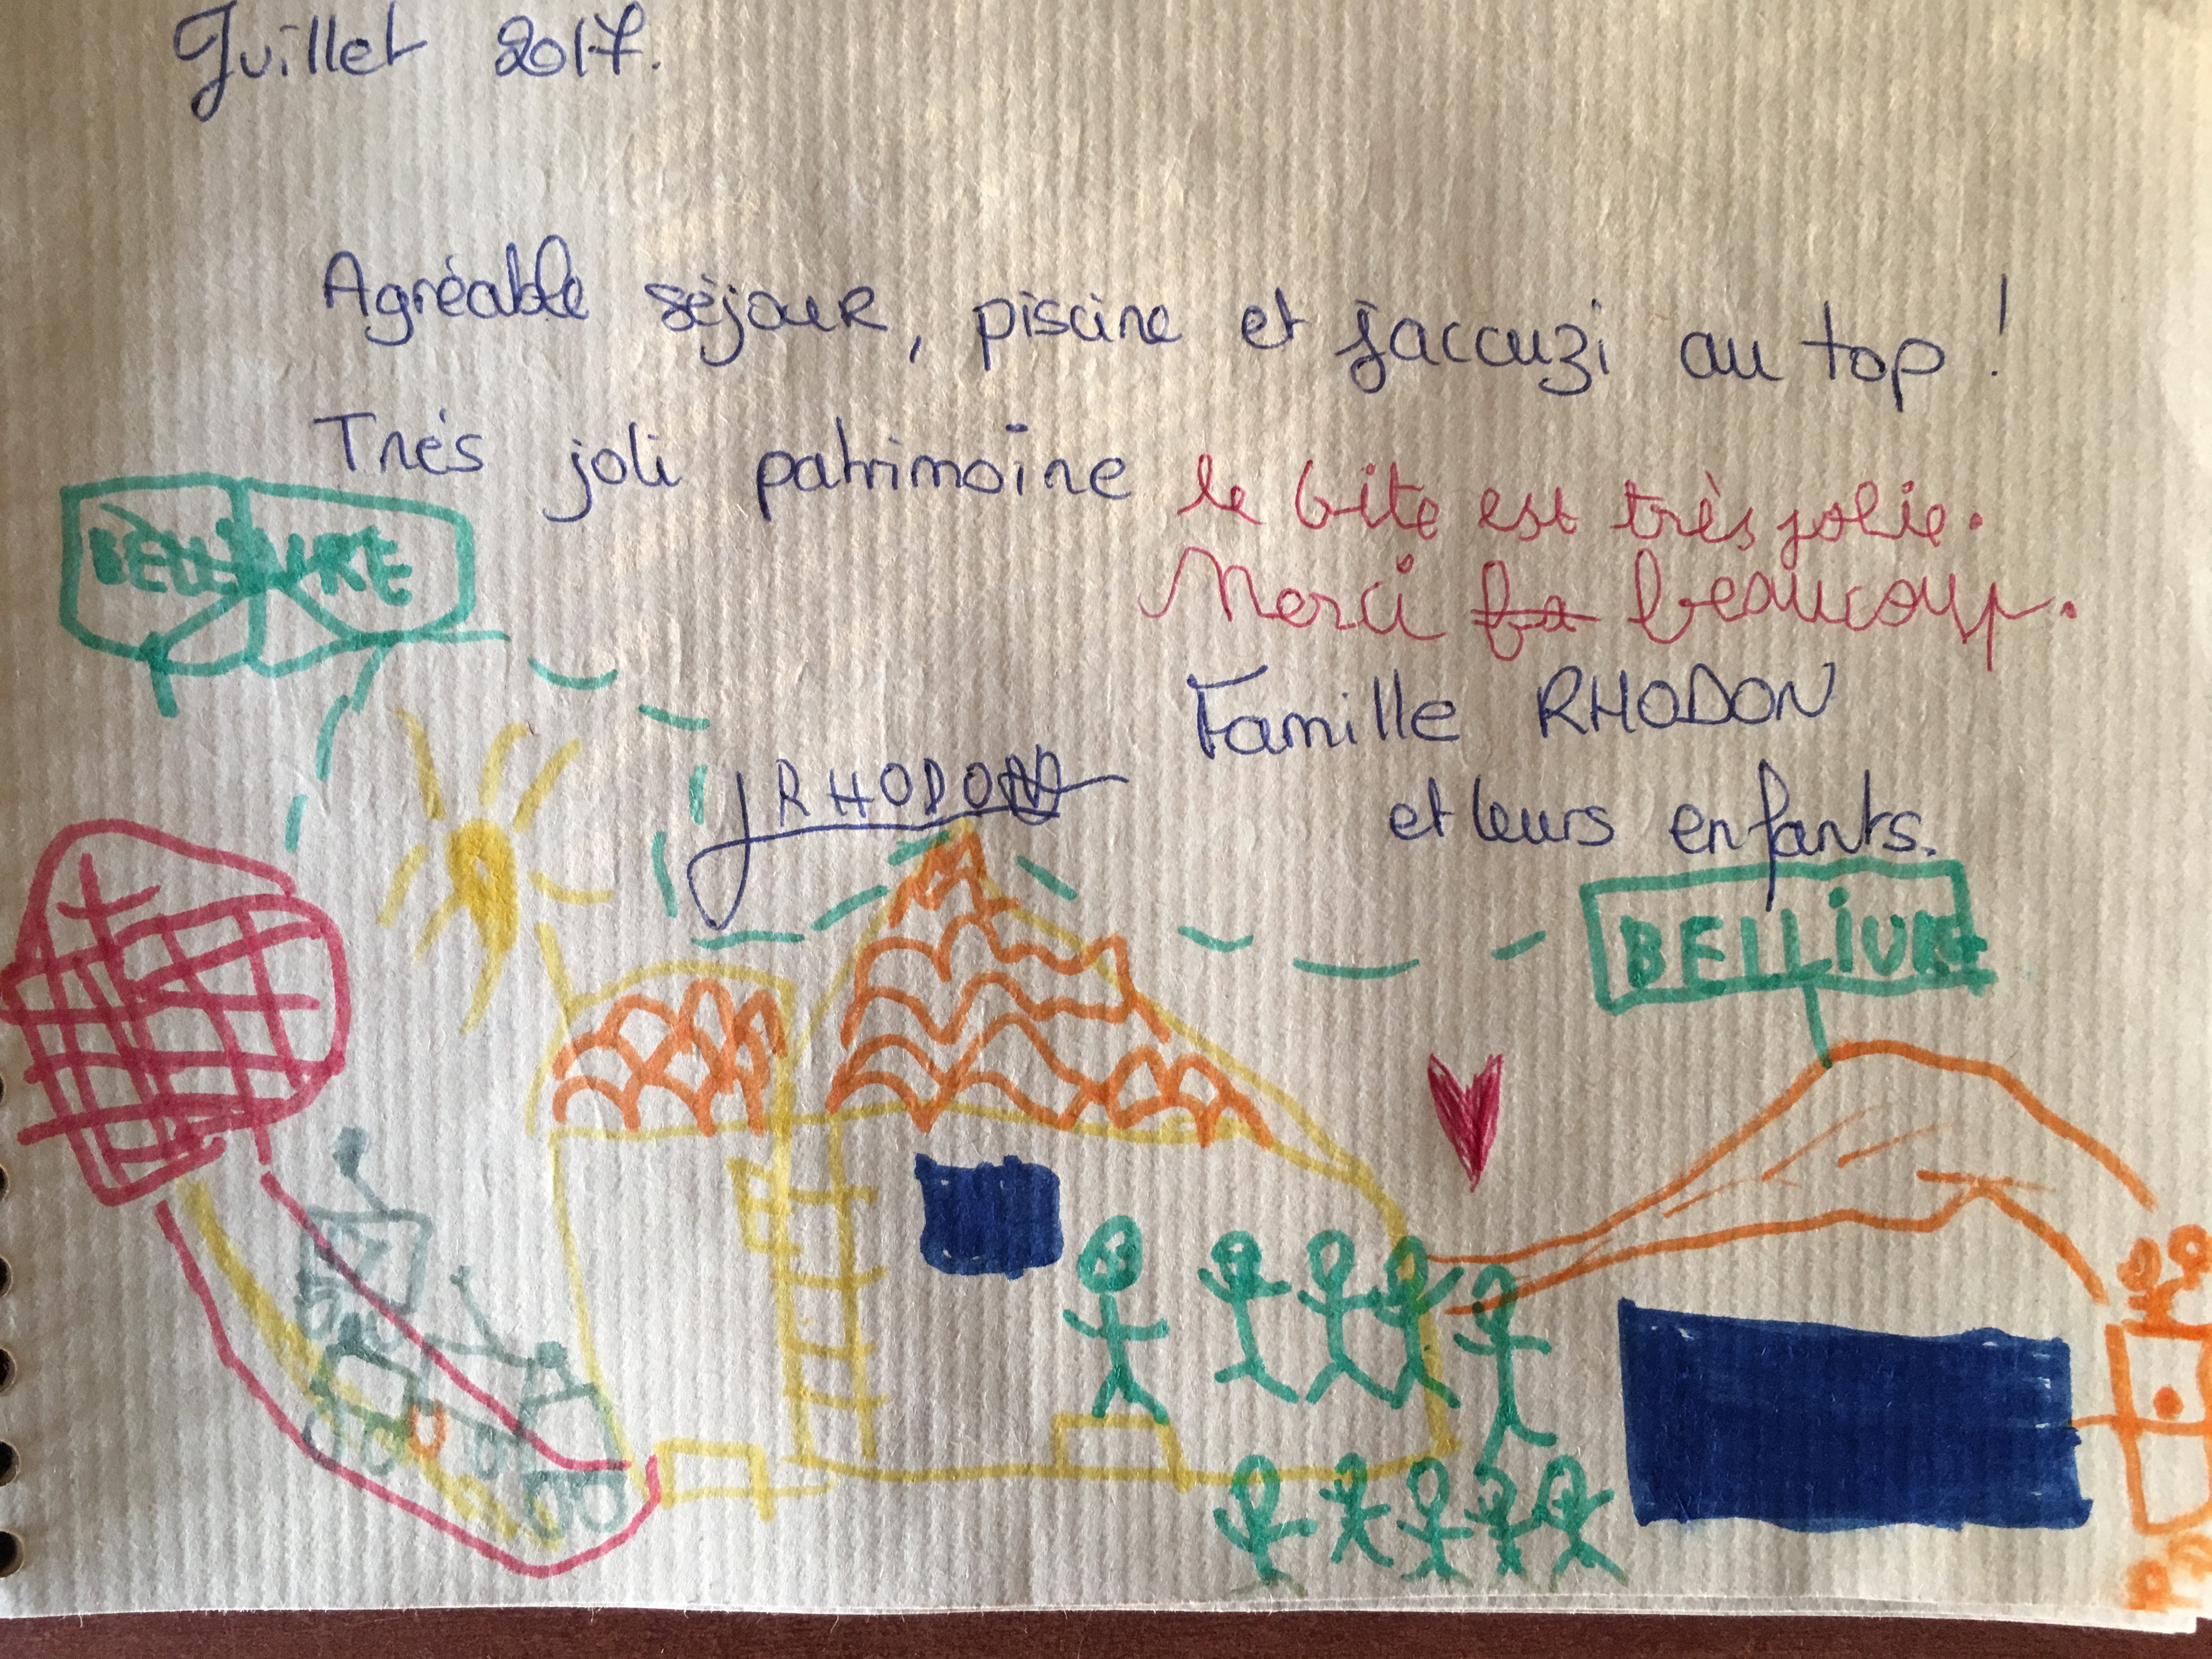 Juillet 2017.
Agréable séjouR, piscine et jaccuzi au top !
Trés joli patrimoîne
le gite est très jolie.
Merci beaucoup.
Famille RHODON
et leurs enfants.
J RHODON
BELLiURE